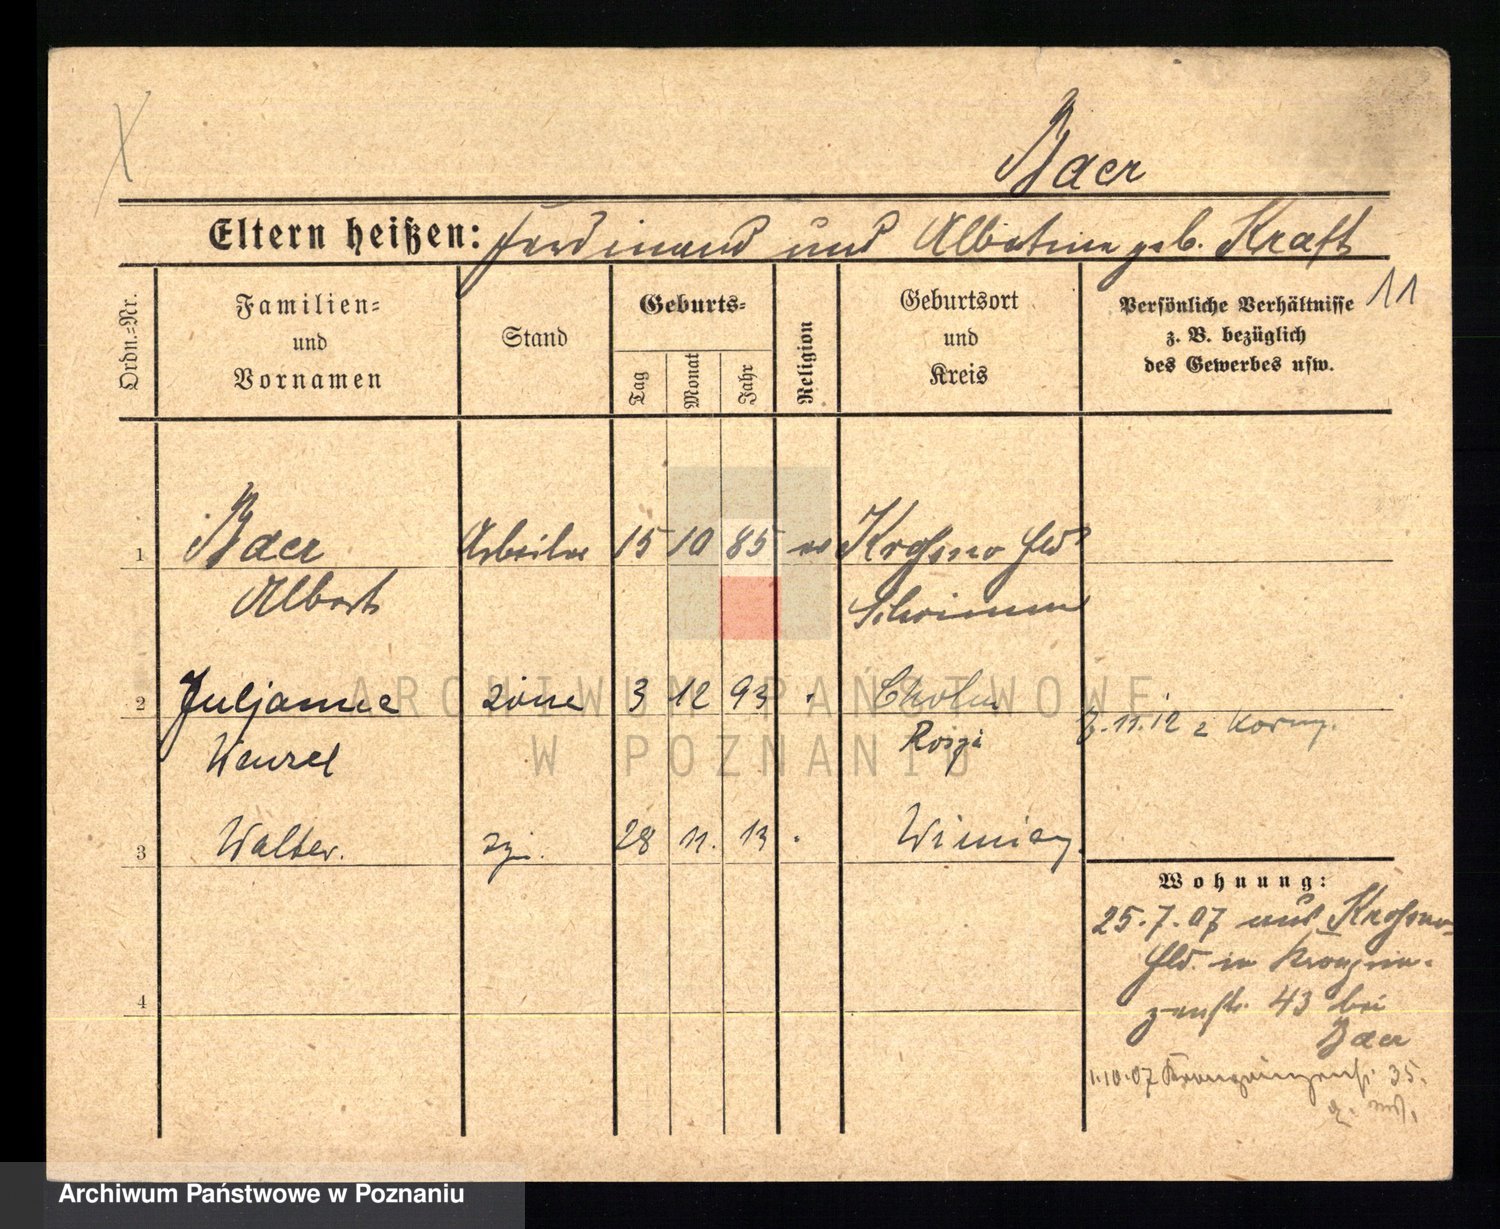 Baer
Eltern heißen: Ferdinand und Albertine geb. Kraft
11
Ordn.-Nr.
Familien-
und
Vornamen
Stand
Geburts-
Tag
Monat
Jahr
Religion
Geburtsort
und
Kreis
Persönliche Verhältnisse
z. B. bezüglich
des Gewerbes usw.
1 Baer Arbeiter 15 10 85 ev Krosno Hld
Albert Schrimm
2 Juljanne 3 12 93
Wenzel
3 Walter. 28 11. 13
4
Wohnung:
25.7.07 aus Krosno-
Hld. in Kronprin-
zenstr. 43 bei
Baer
1.10.07 Kronprinzenstr. 35.
ARCHIWUM PAŃSTWOWE
W POZNANIU
Archiwum Państwowe w Poznaniu